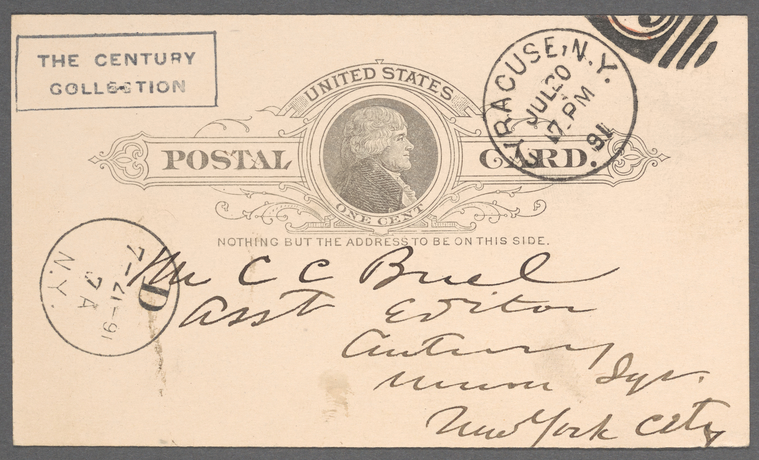 THE CENTURY
COLLECTION
UNITED STATES
POSTAL CARD.
ONE CENT
NOTHING BUT THE ADDRESS TO BE ON THIS SIDE.
SYRACUSE, N.Y.
JUL 20
12 PM
91
D
7-21-91
7A
N.Y.
Mr C C Buel
Asst Editor
Century
Union Sqr.
New York City